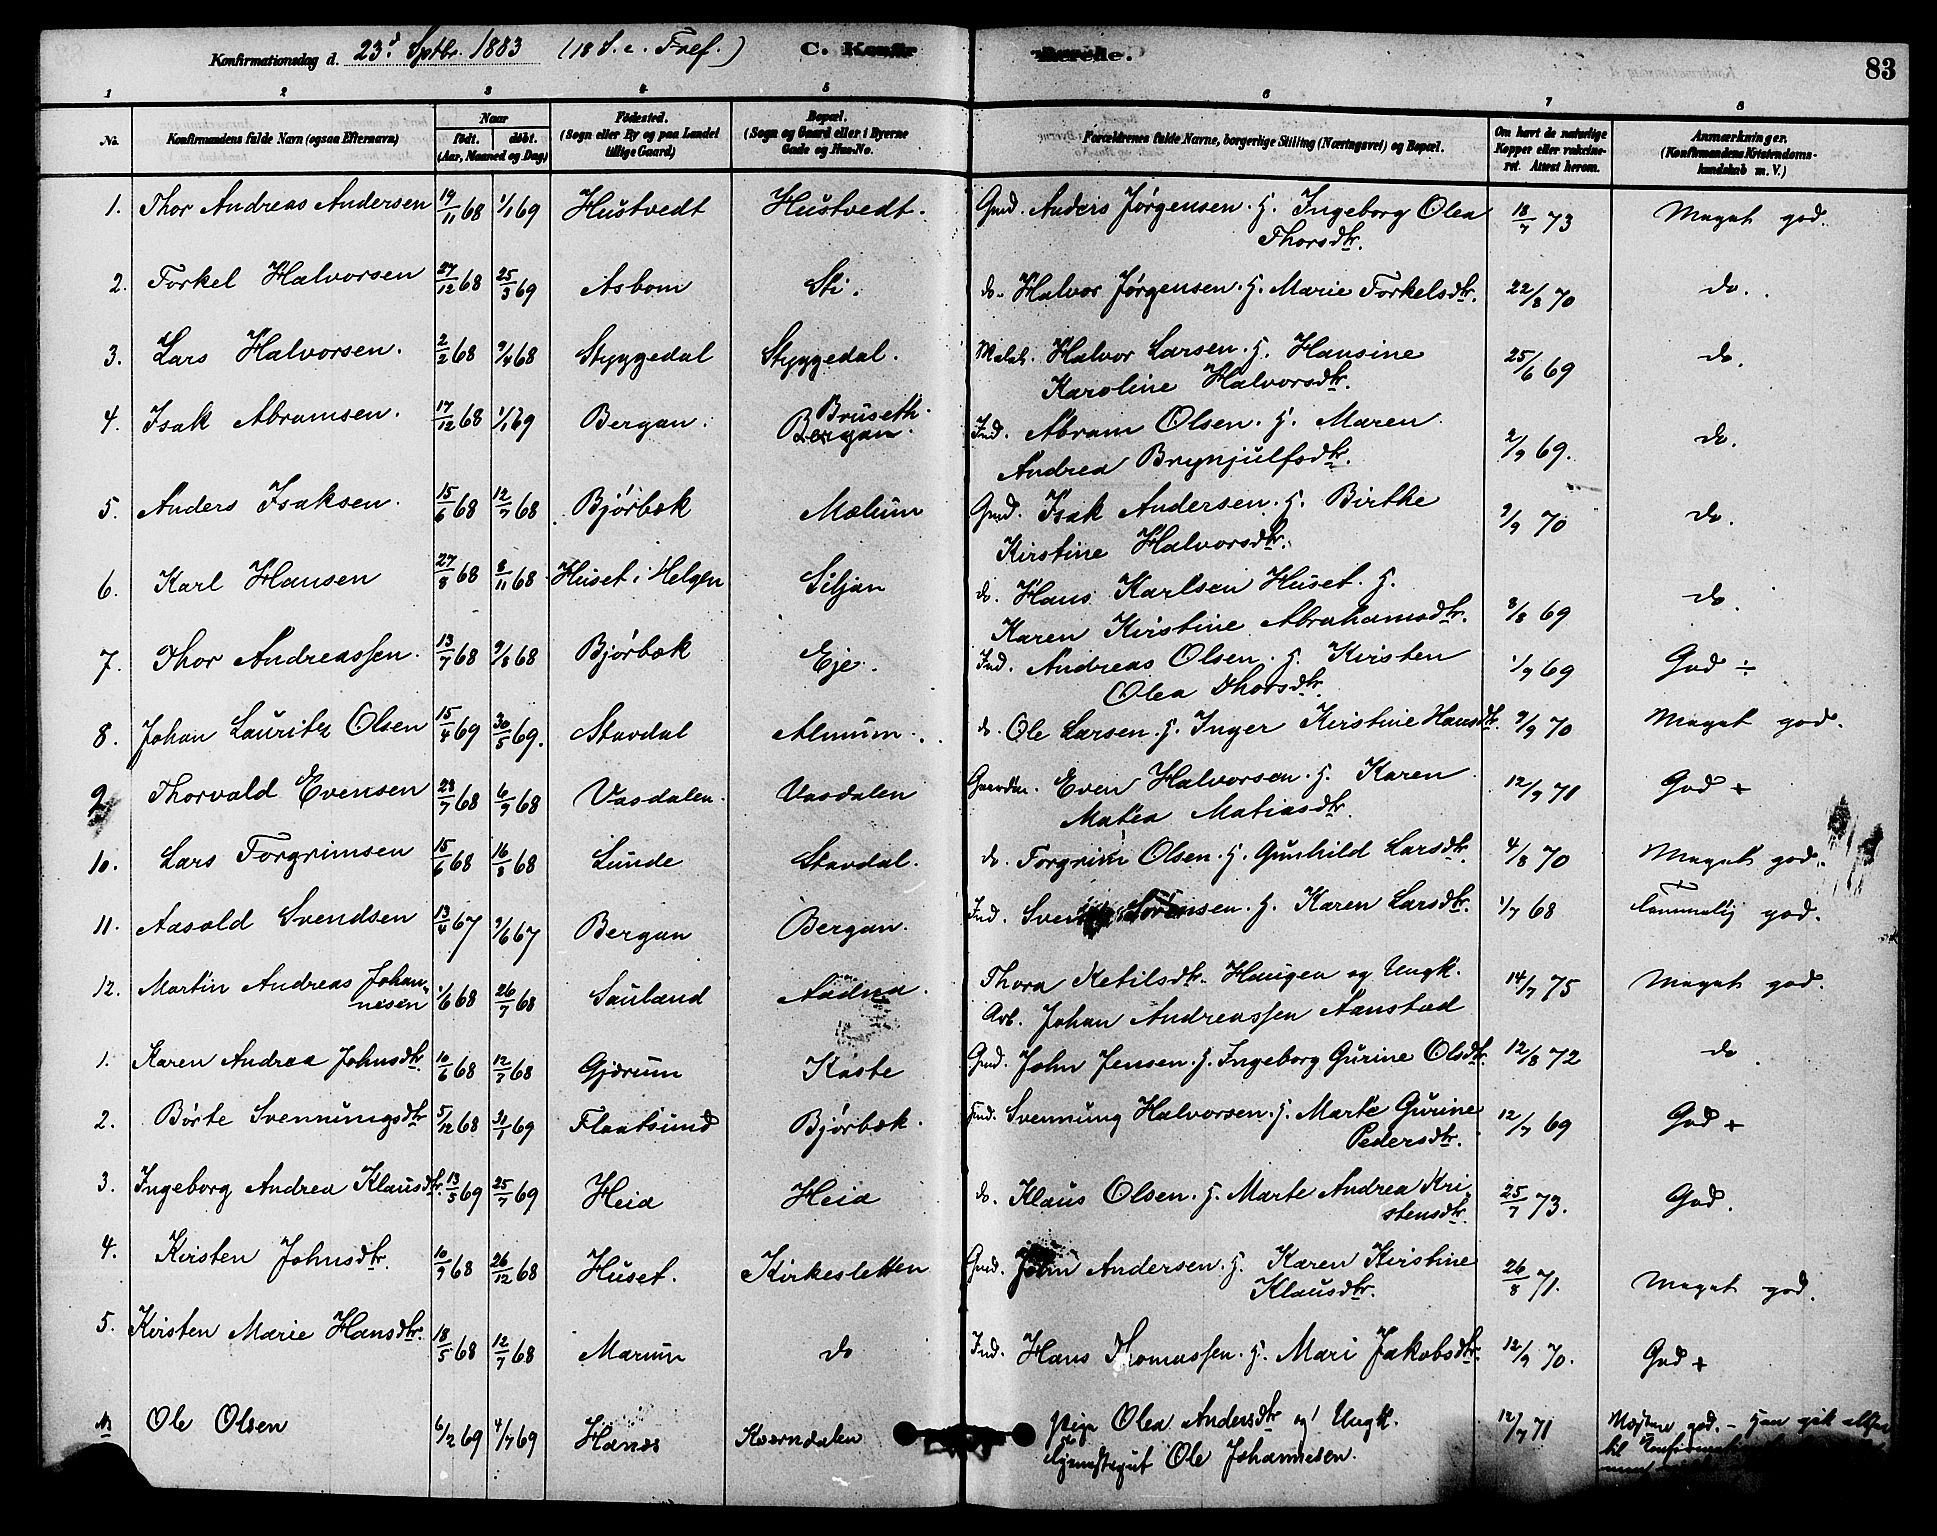 Konfirmationsdag d. 23d Sptbr. 1883 (18 S. e. Tref.) C. Konfir merede. 83
1 2 3 4 5 6 7 8
No. Konfirmandens fulde Navn (ogsaa Efternavn) Naar født. døbt. (Aar, Maaned og Dag) Fødested. (Sogn eller By og paa Landet tillige Gaard) Bopæl. (Sogn og Gaard eller i Byerne Gade og Hus-No. Forældrenes fulde Navne, borgerlige Stilling (Næringsvei) og Bopæl. Om havt de naturlige Kopper eller vaccineret. Attest herom. Anmærkninger. (Konfirmandens Kristendomskundskab m. V.)
1. Thor Andreas Andersen 19/11 68 1/1 69 Hustvedt Hustvedt. Gmd. Anders Jørgensen. H. Ingeborg Olea 18/7 73 Meget god.
Thorsdtr.
2. Torkel Halvorsen 27/12 68 25/3 69 Asbom Sti. do. Halvor Jørgensen. H. Marie Torkelsdtr. 22/8 70 do.
3. Lars Halvorsen. 2/2 68 9/4 68 Styggedal Styggedal. Halvor Larsen. H. Hansine 25/6 69 do.
Karoline Halvorsdtr.
4. Isak Abramsen. 17/12 68 1/1 69 Bergan. Bruseth. Bergan. Ind. Abram Olsen. H. Maren 2/9 69. do.
Andrea Brynjulfsdtr.
5. Anders Isaksen. 15/6 68 12/7 68 Bjørbæk Mælum Gmd. Isak Andersen. H. Birthe 9/9 70 do.
Kirstine Halvorsdtr.
6. Karl Hansen 27/8 68 8/11 68 Huset i Helgen Siljan do. Hans Karlsen Huset. H. 8/8 69 do.
Karen Kirstine Abrahamsdtr.
7. Thor Andreassen. 13/7 68 9/8 68 Bjørbæk Eje. Ind. Andreas Olsen. H. Kirsten 1/9 69 God ÷
Olea Thorsdtr.
8. Johan Lauritz Olsen 15/4 69 30/5 69. Stavdal Almum. do. Ole Larsen. H. Inger Kirstine Hansdtr. 9/9 70 Meget god.
9. Thorvald Evensen 28/7 68 6/9 68 Vasdalen. Vasdalen Gaardm. Even Halvorsen. H. Karen 12/9 71 God +
Matea Matiasdtr.
10. Lars Torgrimsen 15/6 68 16/8 68 Lunde Stavdal. do. Torgrim Olsen. H. Gunhild Larsdtr. 4/8 70 Meget god.
11. Aasold Svendsen 13/4 67 9/6 67 Bergan Bergan. Ind. Svend Sørensen. H. Karen Larsdtr. 1/7 68 Temmelig god.
12. Martin Andreas Johannesen 1/6 68 26/7 68 Sauland Aadna. Thora Ketilsdtr. Haugen og Ungk. 14/7 75 Meget god.
Arb. Johan Andreassen Aanstad
1. Karen Andrea Johnsdtr. 10/6 68 12/7 68 Gjærum Kaste Gmd. John Jensen. H. Ingeborg Gurine Olsdtr. 12/8 72 do
2. Børte Svenningsdtr 5/12 68 31/1 69 Flaatsund Bjørbæk. Ind. Svennung Halvorsen. H. Marte Gurine 12/7 69 God +
Pedersdtr.
3. Ingeborg Andrea Klausdtr. 13/5 69 25/7 69 Heia Heia do. Klaus Olsen. H. Marte Andrea Kri- 25/7 73. God.
stensdtr.
4. Kirsten Johnsdtr. 10/9 68 26/12 68 Huset. Kirkesletten Gmd. John Andersen. H. Karen Kirstine 26/8 71. Meget god.
Klausdtr.
5. Kirsten Marie Hansdtr. 18/5 68 12/7 68 Marum do Ind. Hans Thomassen. H. Mari Jakobsdtr. 12/9 70. God +
Ole Olsen 6/2 69 4/7 69 Hanæs Kværndalen Pige Olea Andersdtr og Ungk. 12/7 71 god. – Han gik
Ole Johannesen. til